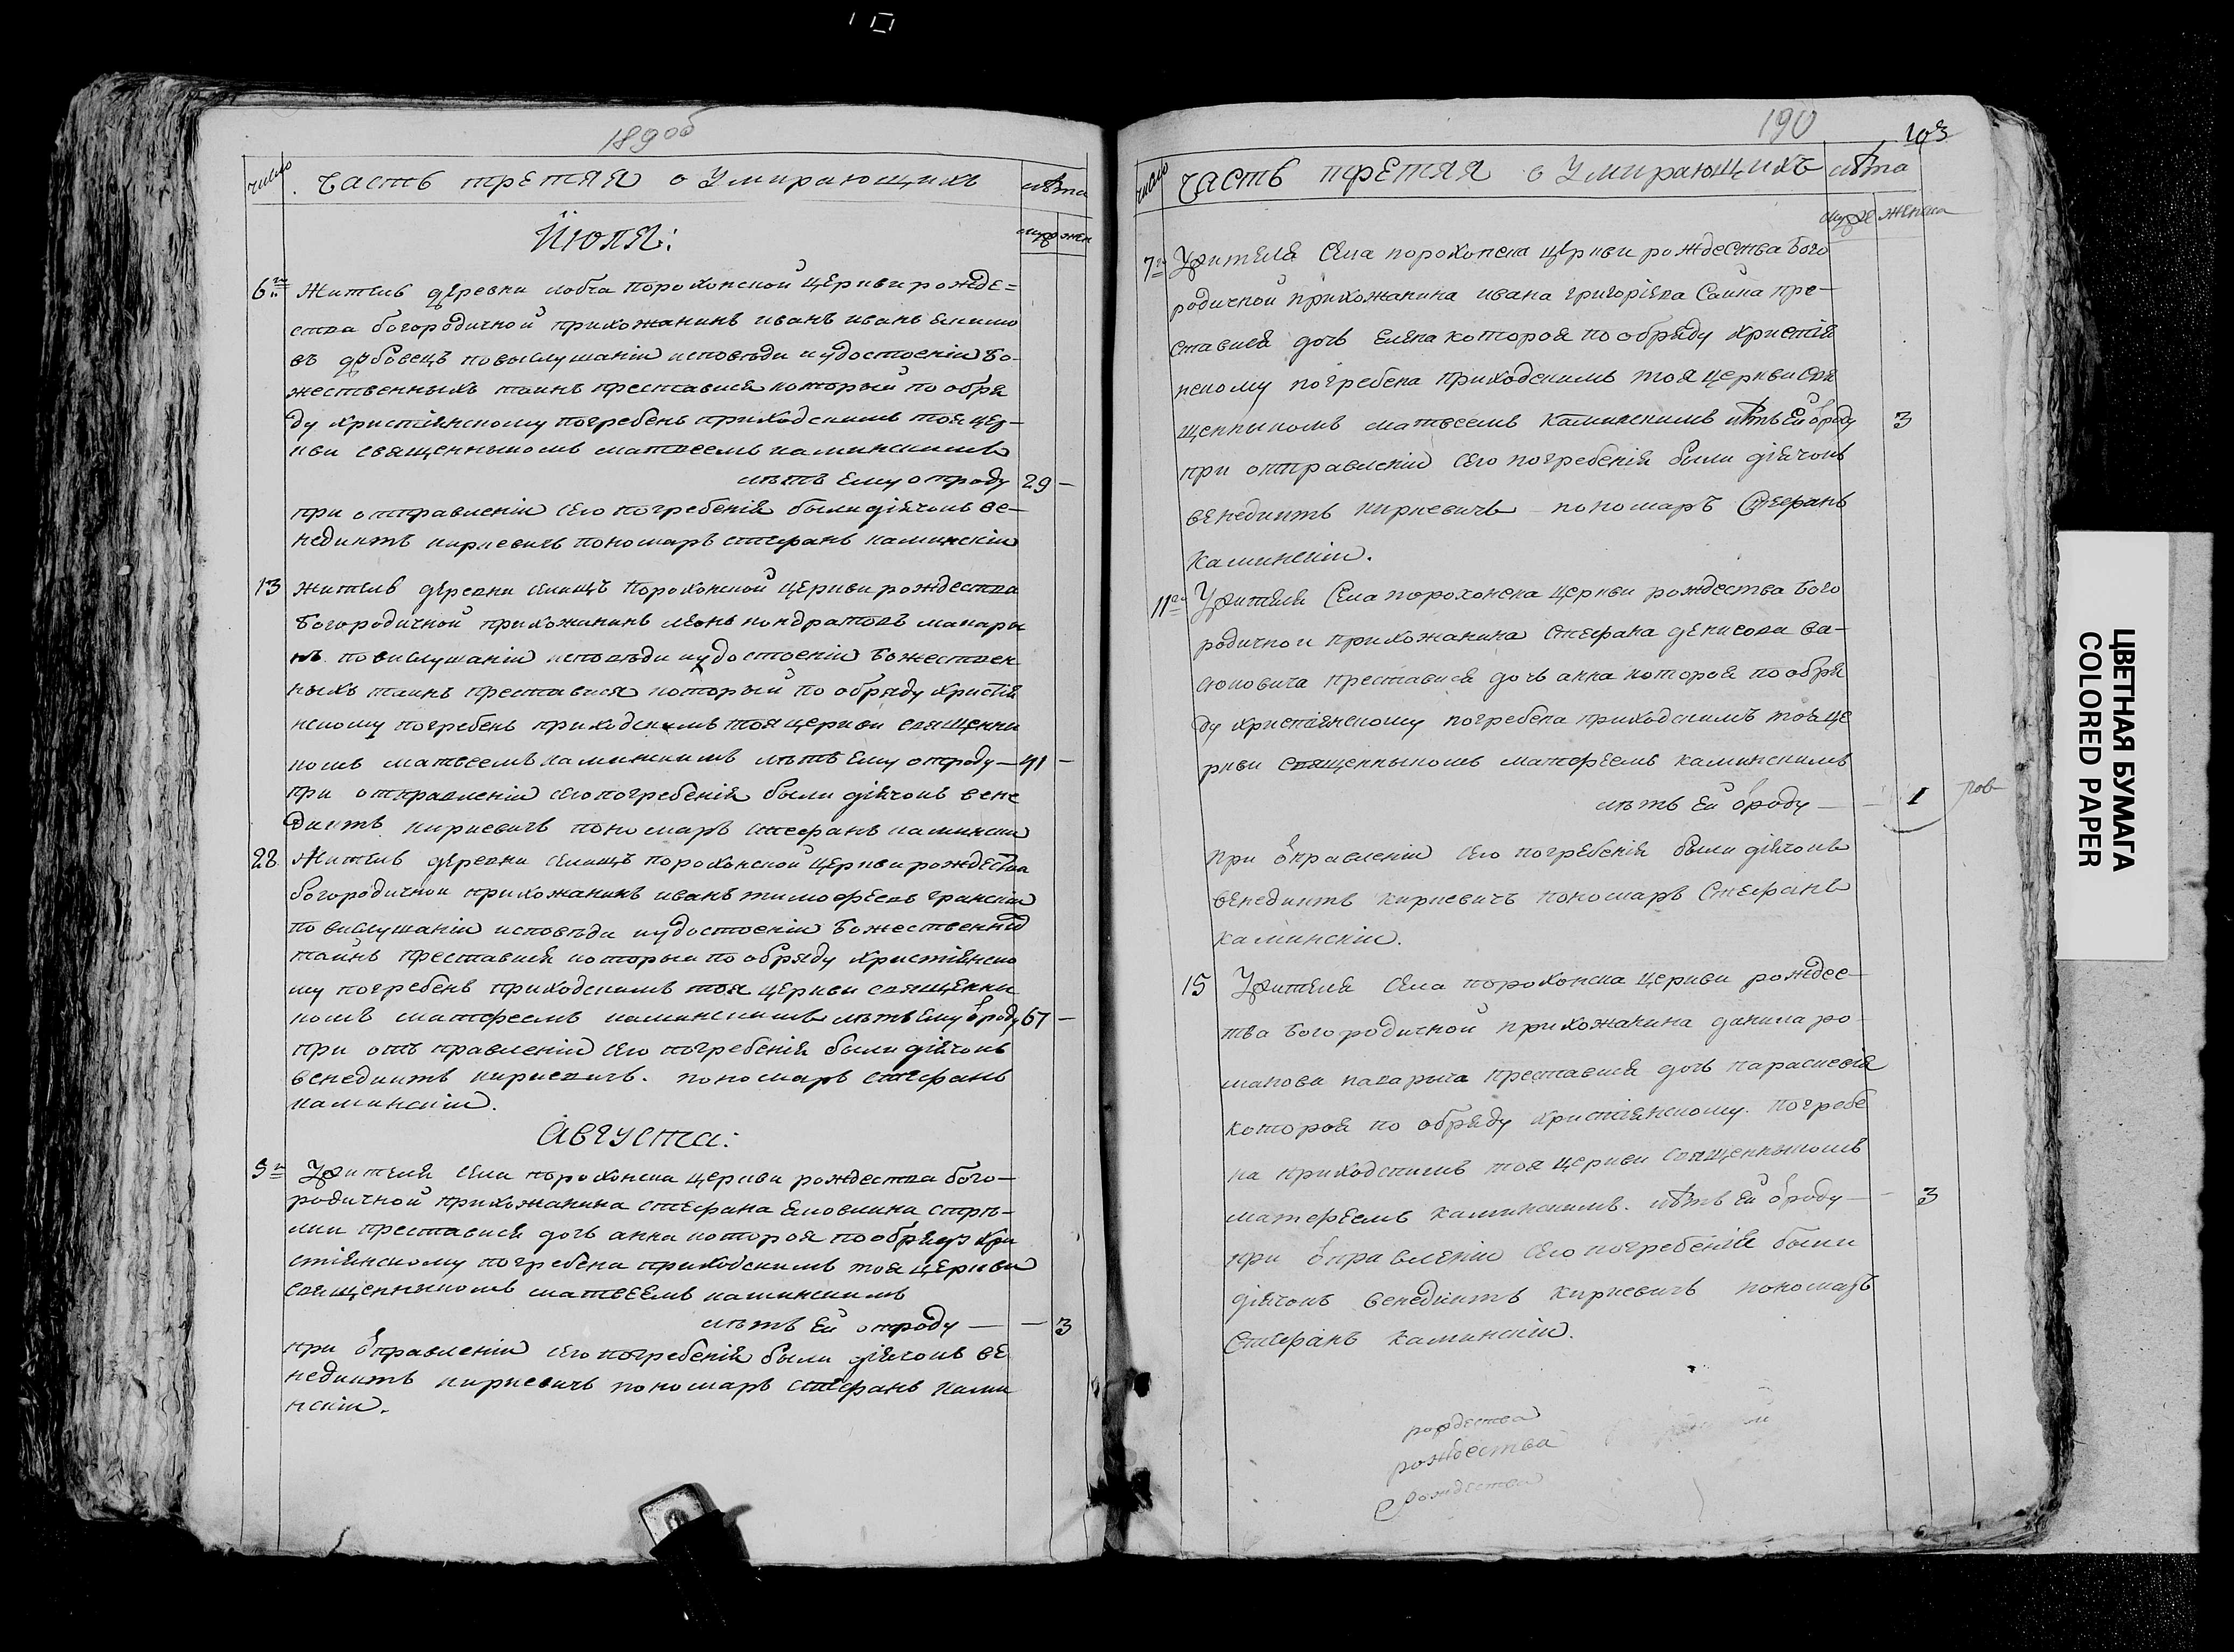 189об
число
Часть третяя о Умирающихъ
лѣта
муж жен
Июля:
6го Житель деревни порохонской церкви рожде=
ства богородичной прихожанинъ иванъ иванъ
повыслушаніи исповѣди и удостоеніи бо-
жественныхъ таинъ преставися который по обря
ду христіянскому погребенъ приходскимъ тоя цер-
кви священныкомъ матвеемъ каминскимъ
лѣтъ Ему отроду 29 -
при отправленіи сего погребенія были діячокъ ве-
недиктъ киркевичъ пономаръ стефанъ каминскіи
13 житель деревни селищъ порохонской церкви рождества
богородичной прихожанинъ леонъ кондратовъ макары
къ повислушаніи исповѣди и удостоеніи божествен
ныхъ таинъ преставися который по обряду христія
нскому погребенъ приходскимъ тоя церкви священи
комъ матвеемъ каминскимъ лѣтъ Ему отроду - 41 -
при отправленіи сего погребенія были діячокъ вене
диктъ киркевичъ пономаръ стефанъ камински
28 Житель деревни селищъ порохонской церкви рождества
богородичной прихожанинъ иванъ тимофеевъ
повислушаніи исповѣди и удостоеніи божественны
таинъ преставися которыи по обряду христіянско
му погребенъ приходскимъ тоя церкви священи
комъ матфеемъ каминскимъ лѣтъ Ему ѿроду 67 -
при отъ правленіи сего погребенія были діячокъ
венедиктъ киркевичъ. пономаръ стефанъ
каминскіи.
Августа:
Жителя села порохонска церкви рождества бого-
родичной прихожанина стефана
преставися дочь анна которая по обряду хри
стіянскому погребена приходскимъ тоя церкви
священныкомъ матвеемъ каминскимъ
лѣтъ Ей отроду - - 3
при ѿправленіи сего погребенія были діячокъ ве
недиктъ киркевичъ пономаръ стефанъ ками
нскіи.
190
103
число
Часть третяя о Умирающихъ
лѣта
муже женска
7го Жителя Села порохонска церкви рождества бого
родичной прихожанина ивана григоріева пре-
ставися дочь Елена которая по обряду христія
нскому погребена приходскимъ тоя церкви свя
щенникомъ матвеемъ каминскимъ лѣтъ Ей ѿроду 3
при отправленіи сего погребенія были діячокъ
венедиктъ киркевичъ пономаръ Стефанъ
каминскіи.
11го Жителя Села порохонска церкви рождества бого
родичнои прихожанина стефана денисова ва-
преставися дочь анна которая по обря
ду христіянскому погребена приходскимъ тоя це
ркви священныкомъ матфеемъ каминскимъ
лѣтъ Ей ѿроду - - 1
при ѿправленіи сего погребенія были діячокъ
венедиктъ киркевичъ пономаръ Стефанъ
каминскіи.
15 Жителя села порохонска церкви рождес-
тва богородичной прихожанина данила ро-
манова преставися дочь параскевія
которая по обряду христіянскому погребе
на приходскимъ тоя церкви священныкомъ
матфеемъ каминскимъ. лѣтъ Ей ѿроду - - 3
при ѿправленіи сего погребенія были
діячокъ венедиктъ киркевичъ пономаръ
Стефанъ каминскіи.
рождества
рождества
рождества
ЦВЕТНАЯ БУМАГА
COLORED PAPER